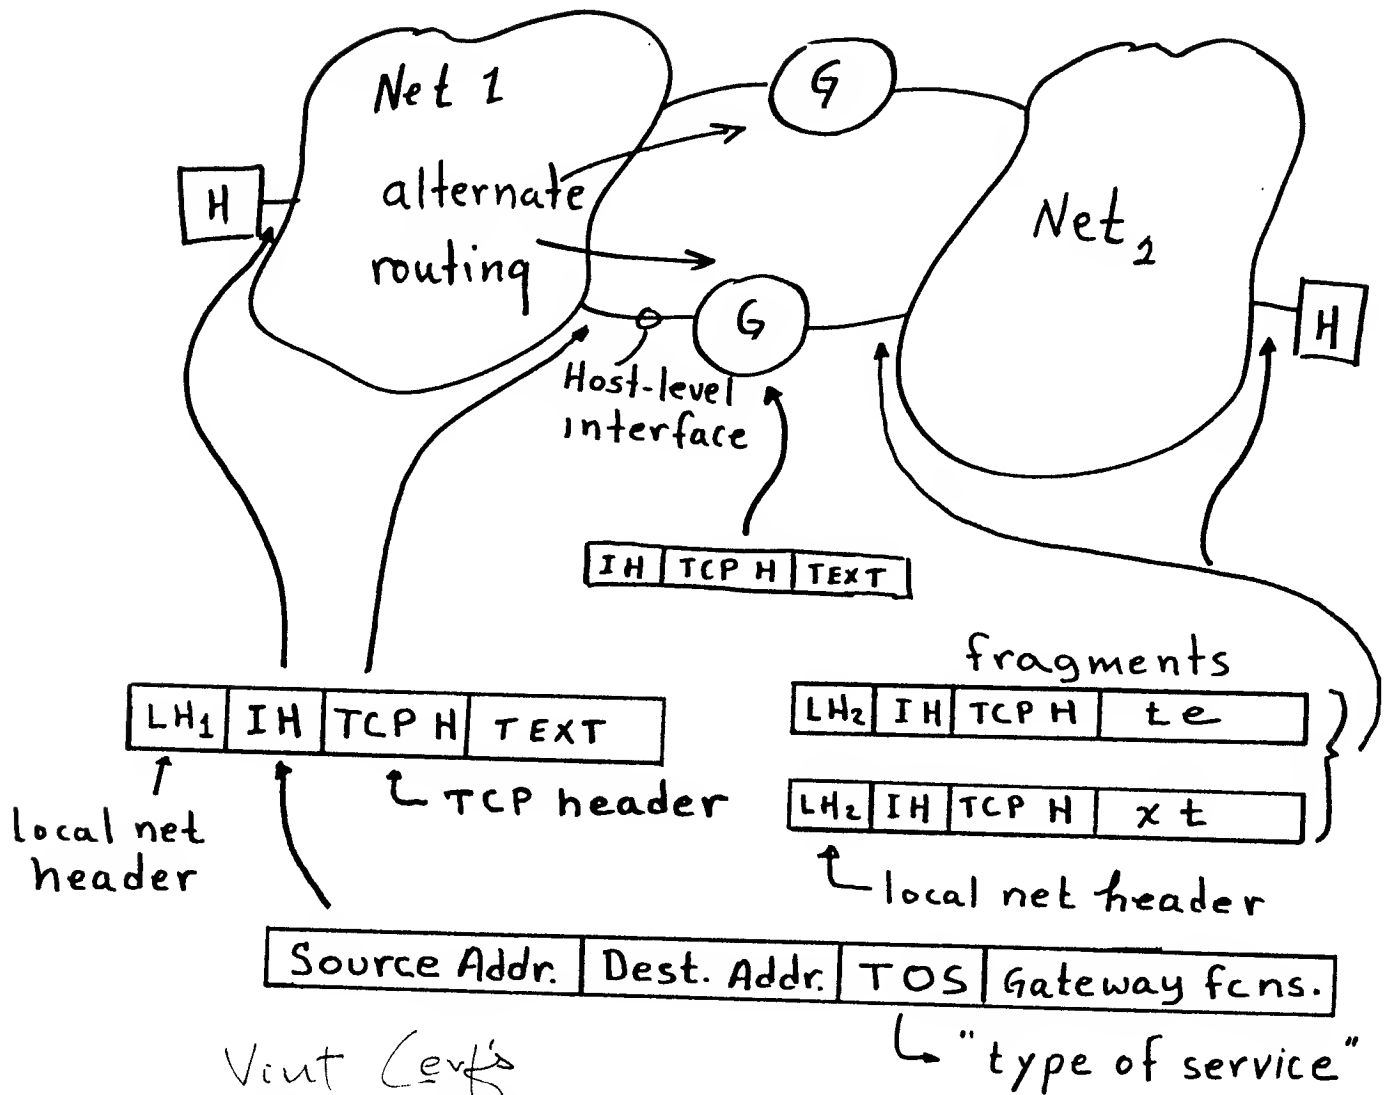 Net 1
G
alternate
routing
H
Net 2
G
H
Host-level
interface
IH TCP H TEXT
fragments
LH1 IH TCP H TEXT
LH2 IH TCP H te
TCP header
LH2 IH TCP H xt
local net
header
local net header
Source Addr. Dest. Addr. TOS Gateway fcns.
"type of service"
Vint Cerf's